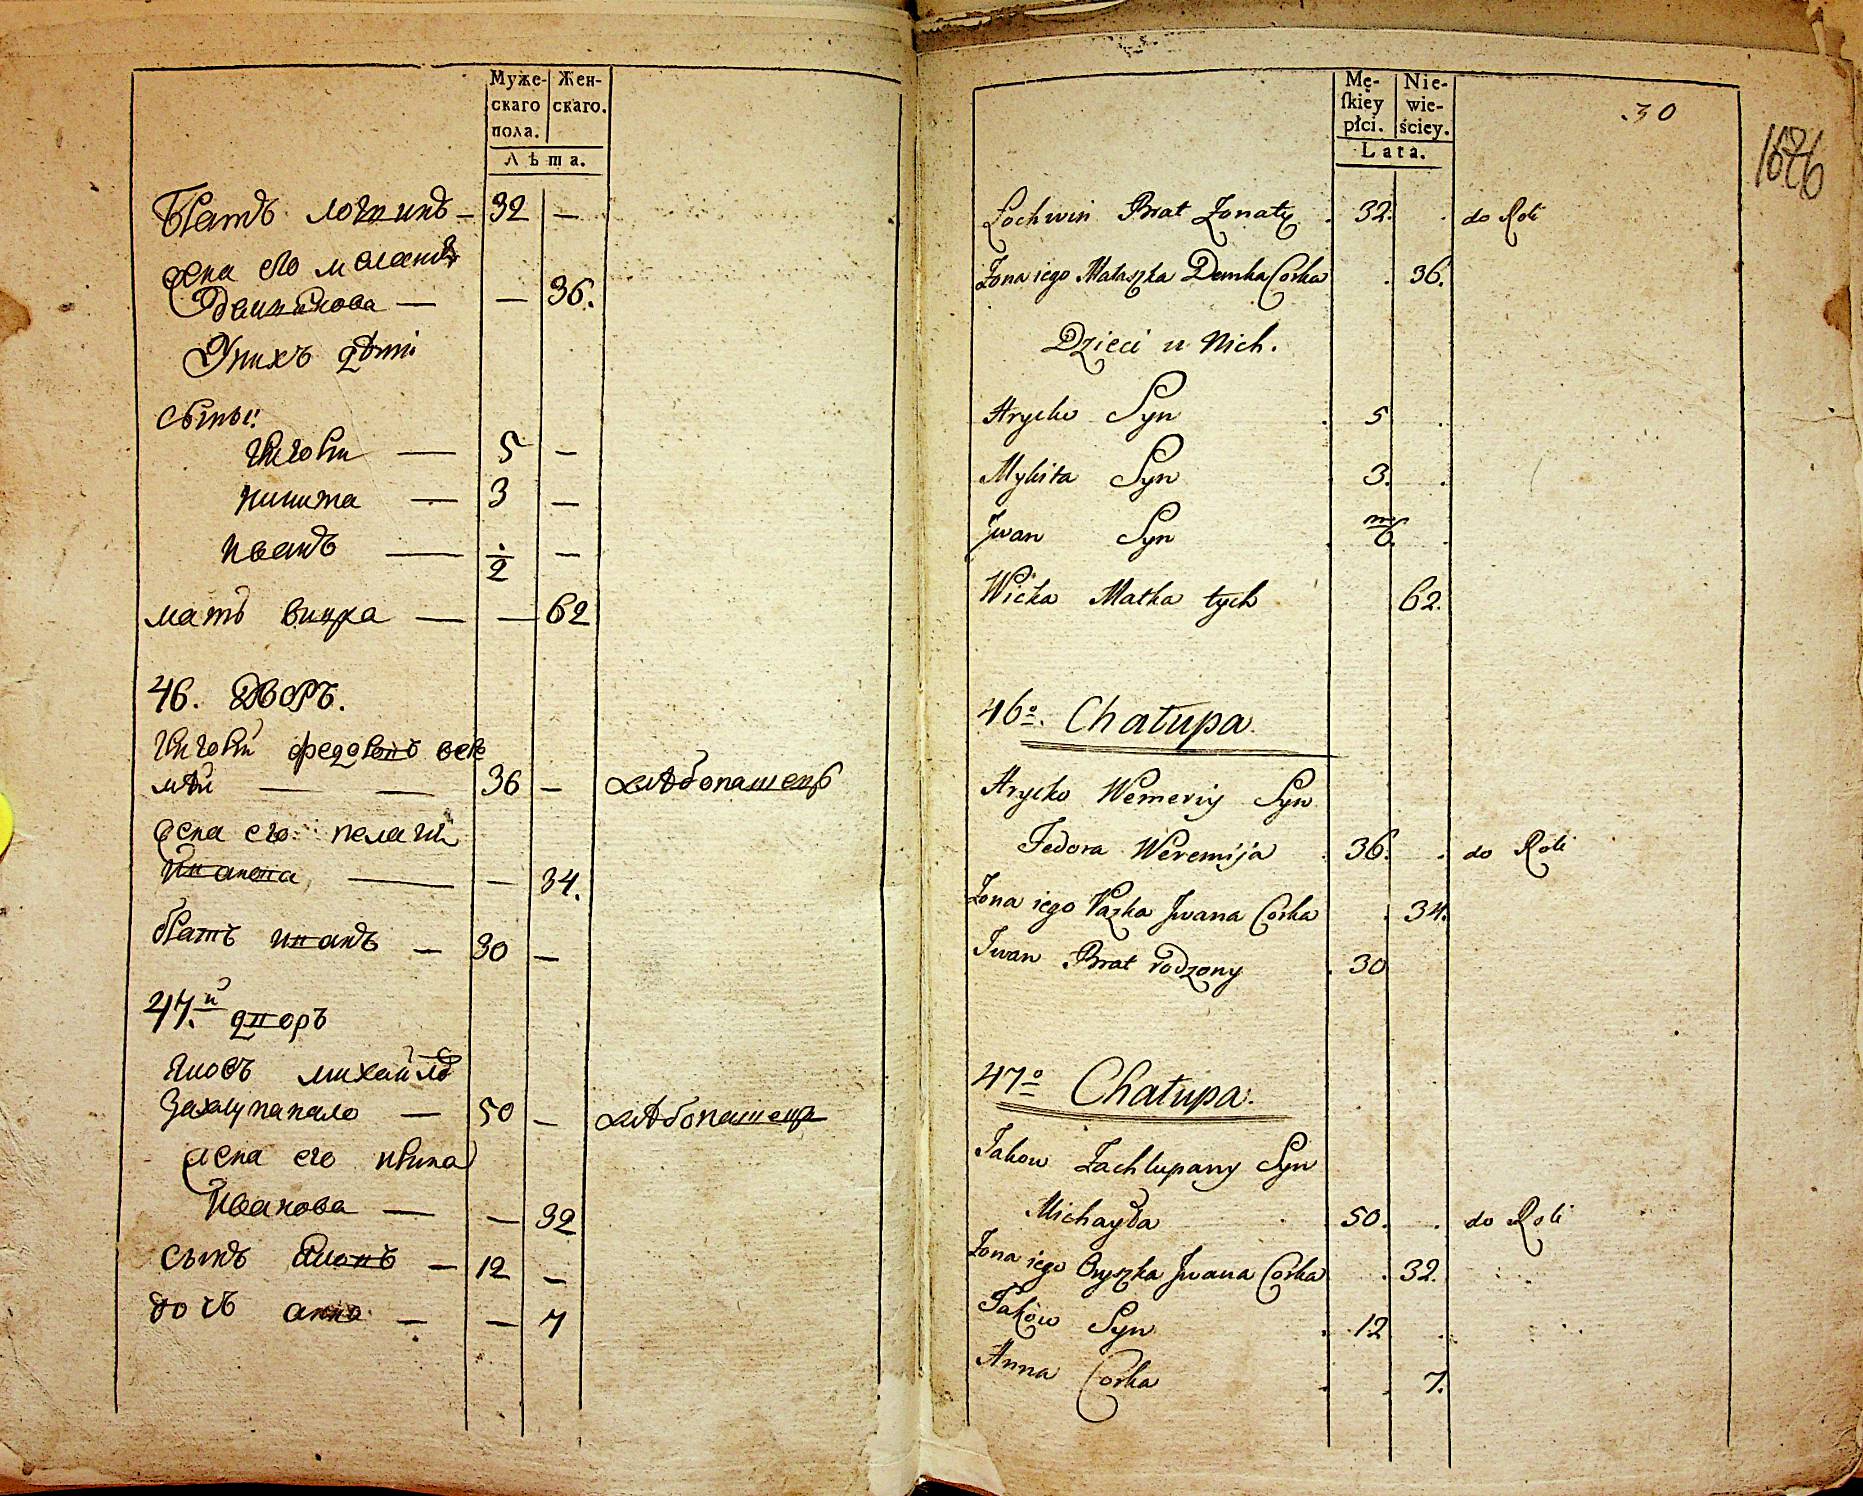 Муже-
скаго
пола.
Жен-
скаго.
Лѣта.
Братъ логвинъ — 32 —
жена его маланя
Демянова — — 36.
Унихъ дѣти
сыны:
григорій — 5 —
никита — 3 —
иванъ — 1/2 —
мать викца — — 62
46. Дворъ.
григорій федоровъ
36 — хлѣбопашецъ
жена его пелагія
иванова, — — 34.
братъ иванъ — 30 —
47.й дворъ
яковъ михайловъ
Захлупанало — 50 — хлѣбопашецъ
жена его ирина
иванова — — 32
сынъ яковъ — 12 —
дочь анна — — 7
Mę-
ſkiey
płci.
Nie-
wie-
ściey.
Lata.
.30
Łochwin Brat Żonaty . 32. . do Roli
Żona iego Małaszka Demka Corka . 36.
Dzieci u Nich.
Hrycko Syn . 5 .
Mykita Syn 3. .
Jwan Syn . m/6. .
Wicka Matka tych 62.
46o. Chałupa.
Hrycko Wemeriy Syn
Fedora Weremija . 36. . do Roli
Żona iego Pazka Jwana Corka . 34.
Iwan Brat rodzony . 30
47o Chałupa.
Jakow Zachlupany Syn
Michayła . 50. . do Roli
Żona iego Oryszka Jwana Corka . 32.
Jaków Syn . 12 .
Anna Corka . . 7.